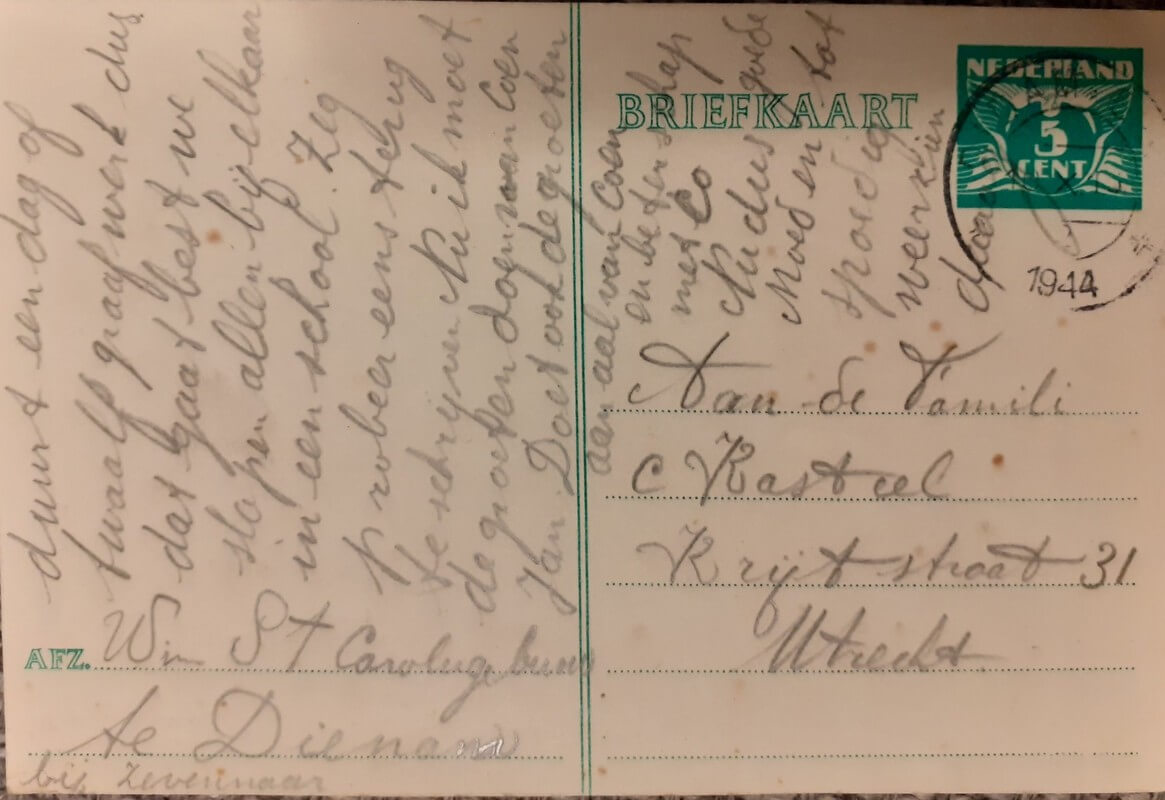 duurt een dag of
twaalf graafwerk dus
dat gaat best we
slapen allen bij elkaar
in een school. Zeg
probeer eens terug
te schryven Nu ik moet
de groeten doen van Coen
Jan. Doet ook de groeten
aan aal van Coen
en beterschap
met Co
Nu dus goede
Moed en tot
spoedig
weerzien
BRIEFKAART
NEDERLAND
5
CENT
1944
Aan de Famili
C Kasteel
Krijtstraat 31
Utrecht
AFZ. Wim St
te Dienam
bij Zevennaar